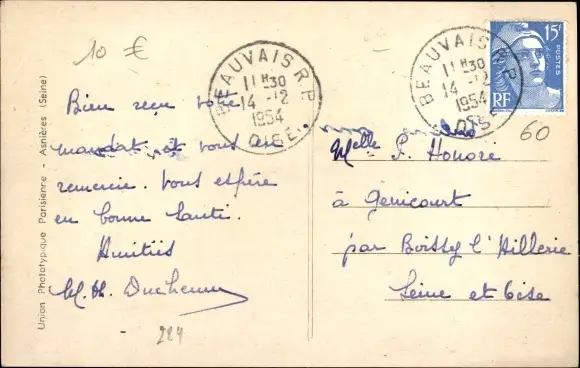 10 €
BEAUVAIS R.P.
11H30
14-12
1954
OISE
BEAUVAIS R.P.
11H30
14-12
1954
OISE
15F
POSTES
RF
60
Bien reçu votre
mandat et vous en
remercie. Vous espère
en bonne santé.
Amitiés
M. Duchemin
Melle P. Honoré
à Génicourt
par Boissy l'Aillerie
Seine et Oise
Union Phototypique Parisienne - Asnières (Seine)
224